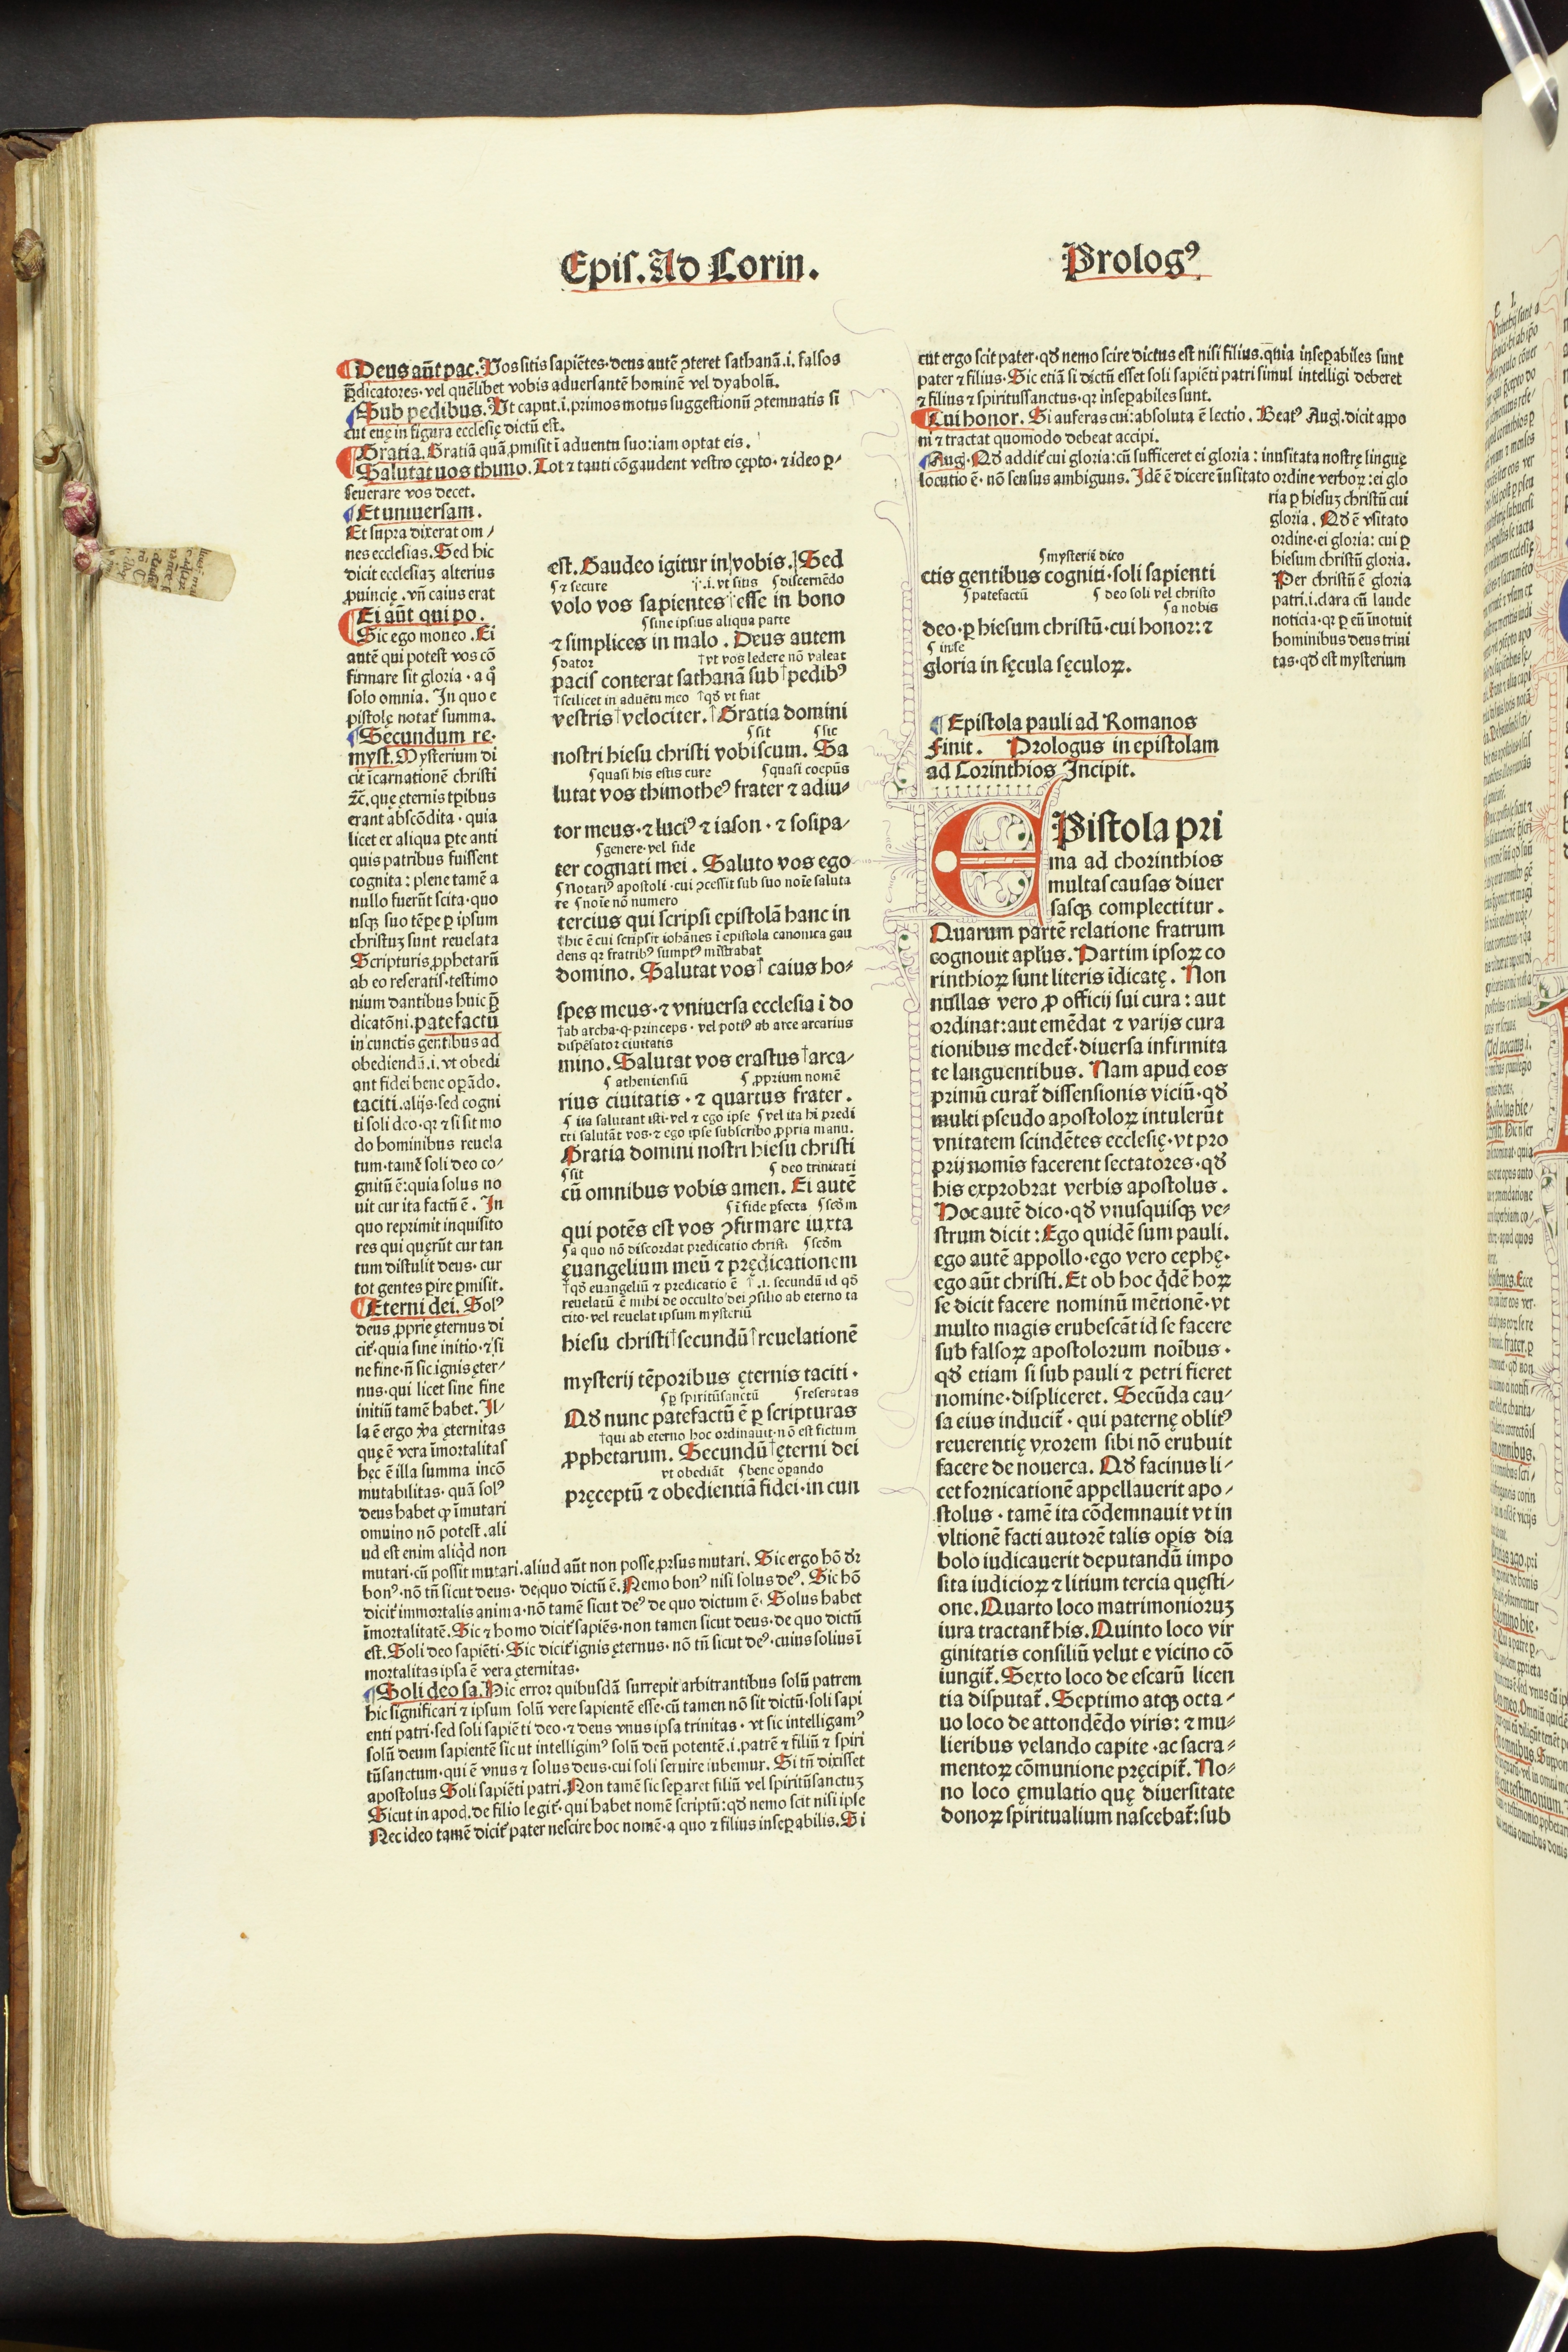 Epis. Ad Corin.
Prologꝰ
Deus aūt pac. Vos sitis sapiētes·deus autē ꝯteret sathanā.i. falsos
p̄dicatores·vel quēlibet vobis aduersantē hominē vel dyabolū.
Sub pedibus. Vt caput.i.primos motus suggestionū ꝯtemnatis si
cut euę in figura ecclesię dictū est.
Gratia. Gratiā quā ꝓmisit ī aduentu suo:iam optat eis.
Salutat uos thimo. Tot ⁊ tanti cōgaudent vestro cępto·⁊ ideo ꝑ-
seuerare vos decet.
Et uniuersam.
Et supra dixerat om-
nes ecclesias. Sed hic
dicit ecclesiaꝫ alterius
ꝓuincię. vn̄ caius erat
Ei aūt qui po.
Sic ego moneo. Ei
autē qui potest vos cō
firmare sit gloria·a q°
solo omnia. In quo e
pistolę notat̄ summa.
Secundum re.
myst. Mysterium di
cit īcarnationē christi
⁊c̄. quę ęternis tp̄ibus
erant abscōdita·quia
licet ex aliqua ꝑte anti
quis patribus fuissent
cognita: plene tamē a
nullo fuerūt scita·quo
usqꝫ suo tēpe ꝑ ipsum
christuꝫ sunt reuelata
Scripturis ꝓphetarū
ab eo reseratis·testimo
nium dantibus huic p̄
dicatōni. patefactū
in cunctis gentibus ad
obediendā.i. vt obedi
ant fidei bene oꝑādo.
taciti. alijs·sed cogni
ti soli deo·qꝛ ⁊ si sit mo
do hominibus reuela
tum·tamē soli deo co-
gnitū ē: quia solus no
uit cur ita factū ē. In
quo reprimit inquisito
res qui quęrūt cur tan
tum distulit deus·cur
tot gentes ꝑire ꝑmisit.
Eterni dei. Solꝰ
deus ꝓprie ęternus di
cit̄·quia sine initio·⁊ si
ne fine·n̄ sic ignis ęter-
nus·qui licet sine fine
initiū tamē habet. Il-
la ē ergo v̄a ęternitas
quę ē vera īmortalitas
hęc ē illa summa incō
mutabilitas·quā solꝰ
deus habet qꝛ īmutari
omnino nō potest. ali
ud est enim aliq̄d non
mutari·cū possit mutari. aliud aūt non posse ꝓrsus mutari. Sic ergo hō dꝛ
bonꝰ·nō tn̄ sicut deus·de quo dictū ē. Nemo bonꝰ nisi solus deꝰ. Sic hō
dicit̄ immortalis anima·nō tamē sicut deꝰ de quo dictum ē. Solus habet
īmortalitatē. Sic ⁊ homo dicit̄ sapiēs·non tamen sicut deus·de quo dictū
est. Soli deo sapiēti. Sic dicit̄ ignis ęternus·nō tn̄ sicut deꝰ·cuius solius ī
mortalitas ipsa ē vera ęternitas.
Soli deo sa. Hic error quibusdā surrepit arbitrantibus solū patrem
hic significari ⁊ ipsum solū vere sapientē esse·cū tamen nō sit dictū·soli sapi
enti patri·sed soli sapiēti deo·⁊ deus vnus ipsa trinitas·vt sic intelligamꝰ
solū deum sapientē sicut intelligimꝰ solū deū potentē.i.patrē ⁊ filiū ⁊ spiri
tūsanctum·qui ē vnus ⁊ solus deus·cui soli seruire iubemur. Si tn̄ dixisset
apostolus Soli sapiēti patri. Non tamē sic seꝑaret filiū vel spiritūsanctuꝫ
Sicut in apoc̄. de filio legit̄·qui habet nomē scriptū: qd̄ nemo scit nisi ipse
Nec ideo tamē dicit̄ pater nescire hoc nomē·a quo ⁊ filius inseꝑabilis. Si
est. Gaudeo igitur in vobis. Sed
⁊ secure .i. vt sitis discernēdo
volo vos sapientes esse in bono
sine ipsius aliqua parte
⁊ simplices in malo. Deus autem
dator vt vos ledere nō valeat
pacis conterat sathanā sub pedibꝰ
scilicet in aduētu meo qd̄ vt fiat
vestris velociter. Gratia domini
sit sic
nostri hiesu christi vobiscum. Sa
quasi his estis cure quasi coepūs
lutat vos thimotheꝰ frater ⁊ adiu-
tor meus·⁊ luciꝰ ⁊ iason·⁊ sosipa-
genere·vel fide
ter cognati mei. Saluto vos ego
Notariꝰ apostoli·cui ꝯcessit sub suo noīe saluta
re noīe nō numero
tercius qui scripsi epistolā hanc in
hic ē cui scripsit iohānes ī epistola canonica gau
dens qꝛ fratribꝰ sumptꝰ mīstrabat
domino. Salutat vos caius ho-
spes meus·⁊ vniuersa ecclesia ī do
ab archa·q·princeps·vel potiꝰ ab arce arcarius
dispēsator ciuitatis
mino. Salutat vos erastus arca-
atheniensiū ꝓprium nomē
rius ciuitatis·⁊ quartus frater.
ita salutant isti·vel ⁊ ego ipse vel ita hi predi
cti salutāt vos·⁊ ego ipse subscribo ꝓpria manu.
Gratia domini nostri hiesu christi
sit deo trinitati
cū omnibus vobis amen. Ei autē
ī fide ꝑfecta scd̄m
qui potēs est vos ꝯfirmare iuxta
a quo nō discordat predicatio christi scd̄m
ęuangelium meū ⁊ prędicationem
qd̄ euangeliū ⁊ predicatio ē .i. secundū id qd̄
reuelatū ē mihi de occulto dei ꝯsilio ab eterno ta
cito·vel reuelat ipsum mysteriū
hiesu christi secundū reuelationē
mysterij tēporibus ęternis taciti.
ꝑ spiritūsanctū reseratas
Qd̄ nunc patefactū ē ꝑ scripturas
qui ab eterno hoc ordinauit·nō est fictum
ꝓphetarum. Secundū ęterni dei
vt obediāt bene oꝑando
pręceptū ⁊ obedientiā fidei·in cun
cut ergo scit pater·qd̄ nemo scire dictus est nisi filius. quia inseꝑabiles sunt
pater ⁊ filius·Sic etiā si dictū esset soli sapiēti patri simul intelligi deberet
⁊ filius ⁊ spiritussanctus·qꝛ inseꝑabiles sunt.
Cui honor. Si auferas cui: absoluta ē lectio. Beatꝰ Aug. dicit appo
ni ⁊ tractat quomodo debeat accipi.
Aug. Qd̄ addit̄ cui gloria: cū sufficeret ei gloria: inusitata nostrę linguę
locutio ē·nō sensus ambiguus. Idē ē dicere īnsitato ordine verboꝝ: ei glo
ria ꝑ hiesuꝫ christū cui
gloria. Qd̄ ē vsitato
ordine·ei gloria: cui ꝑ
hiesum christū gloria.
Per christū ē gloria
patri.i.clara cū laude
noticia·qꝛ ꝑ eū īnotuit
hominibus deus trini
tas·qd̄ est mysterium
mysterij dico
ctis gentibus cogniti·soli sapienti
patefactū deo soli vel christo
a nobis
deo·ꝑ hiesum christū·cui honor: ⁊
in se
gloria in sęcula sęculoꝝ.
Epistola pauli ad Romanos
Finit. Prologus in epistolam
ad Corinthios Incipit.
EPistola pri
ma ad chorinthios
multas causas diuer
sasqꝫ complectitur.
Quarum partē relatione fratrum
cognouit apl̄us. Partim ipsoꝝ co
rinthioꝝ sunt literis īdicatę. Non
nullas vero ꝓ officij sui cura: aut
ordinat: aut emēdat ⁊ varijs cura
tionibus medet̄·diuersa infirmita
te languentibus. Nam apud eos
primū curat̄ dissensionis viciū·qd̄
multi pseudo apostoloꝝ intulerūt
vnitatem scindētes ecclesię·vt pro
prij nomīs facerent sectatores·qd̄
his exprobrat verbis apostolus.
Hoc autē dico·qd̄ vnusquisqꝫ ve-
strum dicit: Ego quidē sum pauli.
ego autē appollo·ego vero cephę.
ego aūt christi. Et ob hoc q̄dē hoꝝ
se dicit facere nominū mētionē·vt
multo magis erubescāt id se facere
sub falsoꝝ apostolorum noībus.
qd̄ etiam si sub pauli ⁊ petri fieret
nomine·displiceret. Secūda cau-
sa eius inducit̄·qui paternę oblitꝰ
reuerentię vxorem sibi nō erubuit
facere de nouerca. Qd̄ facinus li-
cet fornicationē appellauerit apo-
stolus·tamē ita cōdemnauit vt in
vltionē facti autorē talis oꝑis dia
bolo iudicauerit deputandū impo
sita iudicioꝝ ⁊ litium tercia quęsti-
one. Quarto loco matrimonioruꝫ
iura tractant̄ his. Quinto loco vir
ginitatis consiliū velut e vicino cō
iungit̄. Sexto loco de escarū licen
tia disputat̄. Septimo atqꝫ octa-
uo loco de attondēdo viris: ⁊ mu-
lieribus velando capite·ac sacra-
mentoꝝ cōmunione pręcipit̄. No-
no loco ęmulatio quę diuersitate
donoꝝ spiritualium nascebat̄: sub